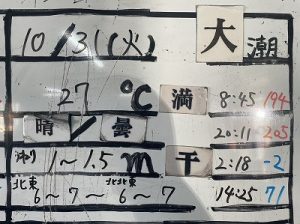 10/31(火) 大潮
27 ℃ 満 8:45 194
晴/曇 20:11 205
1〜1.5m 干 2:18 -2
北東 北北東
6〜7〜6〜7 14:25 71